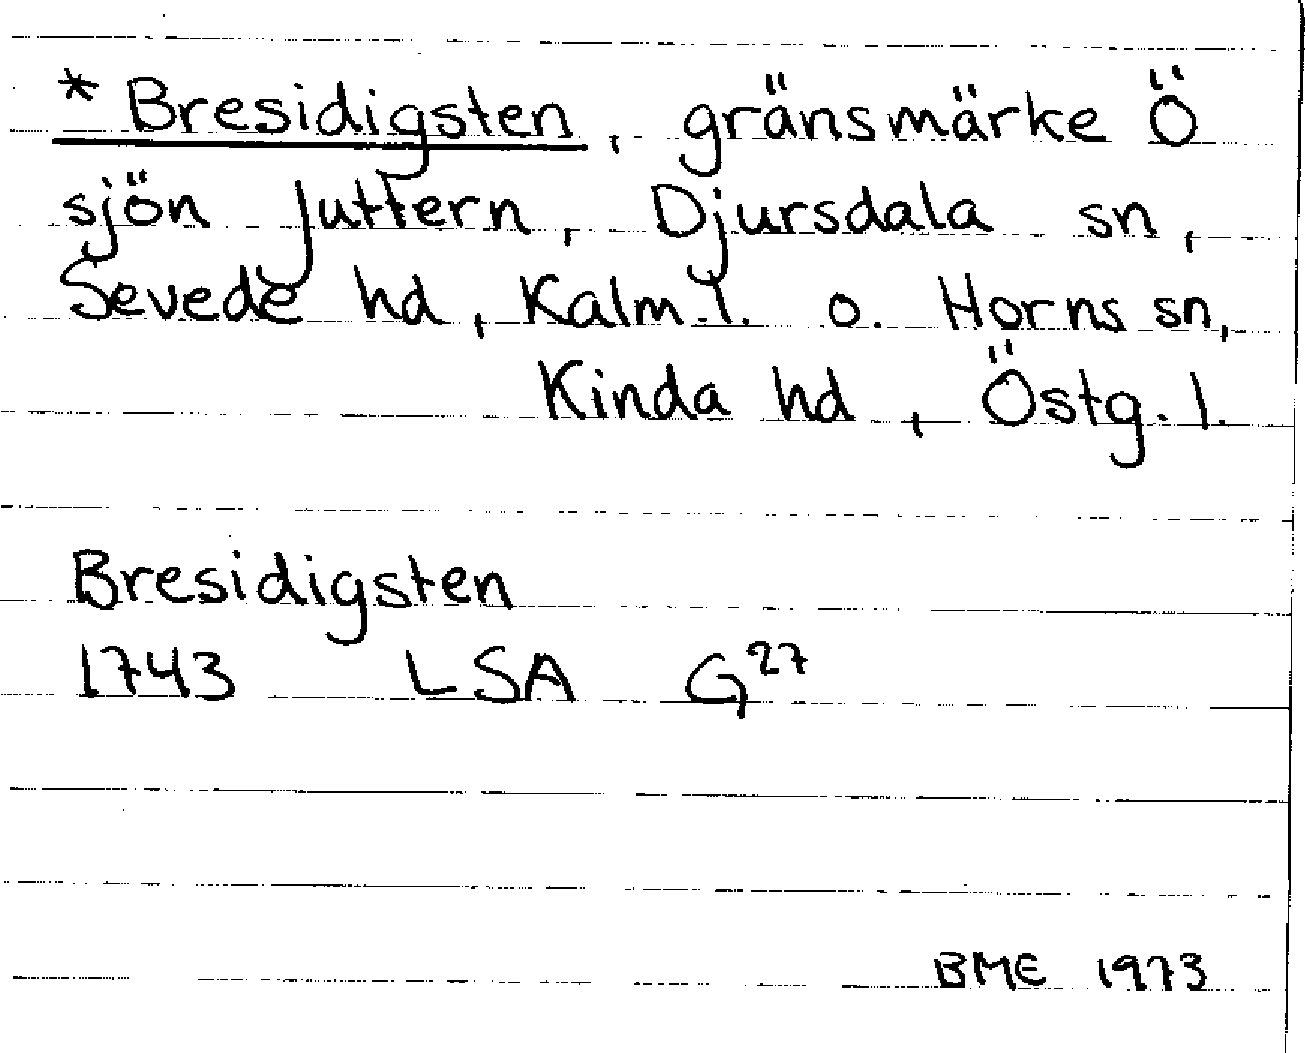 * Bresidigsten, gränsmärke Ö
sjön Juttern, Djursdala sn,
Sevede hd, Kalm. l. o. Horns sn,
Kinda hd, Östg. l.
Bresidigsten
1743 LSA G²⁷
BME 1973